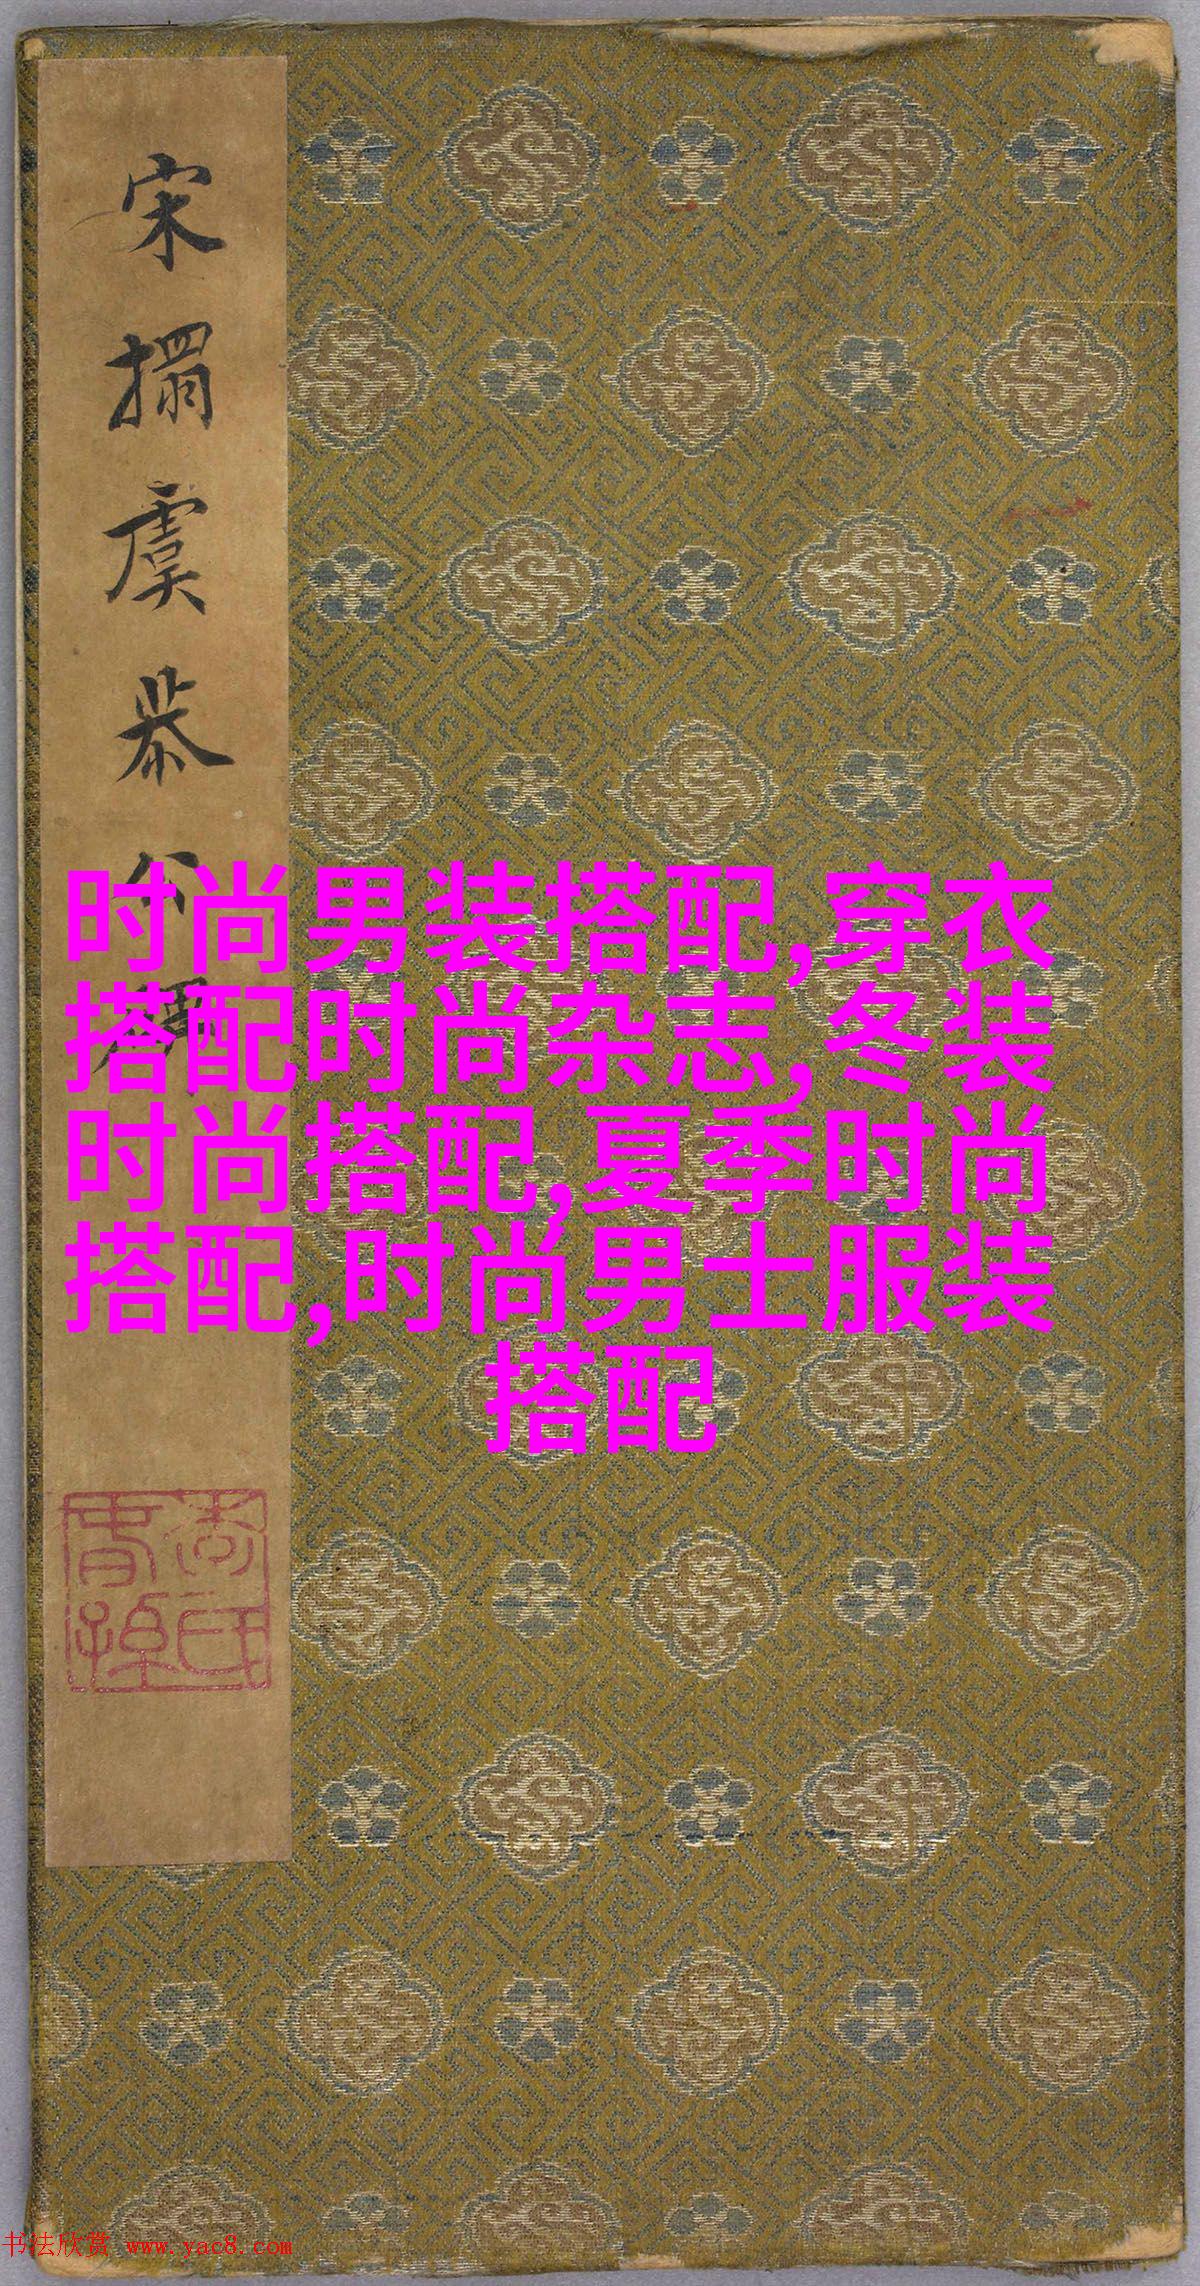 宋搨虞恭公碑
时尚男装搭配,穿衣
搭配时尚杂志,冬装
时尚搭配,夏季时尚
搭配,时尚男士服装
搭配
书法欣赏 www.yac8.com